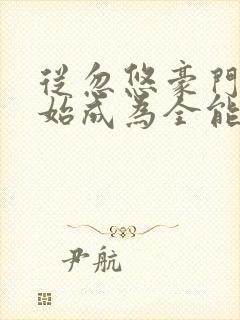 從忽悠豪門
始成為全能
尹航